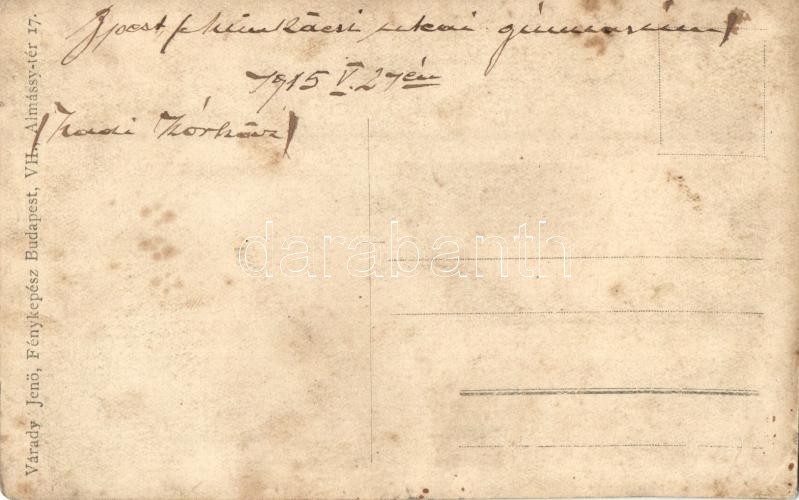 Bpest, Munkácsi utcai gimnasium)
1915 V. 27én
(Hadi Kórház)
Várady Jenő, Fényképész Budapest, VII., Almássy-tér 17.
darabanth